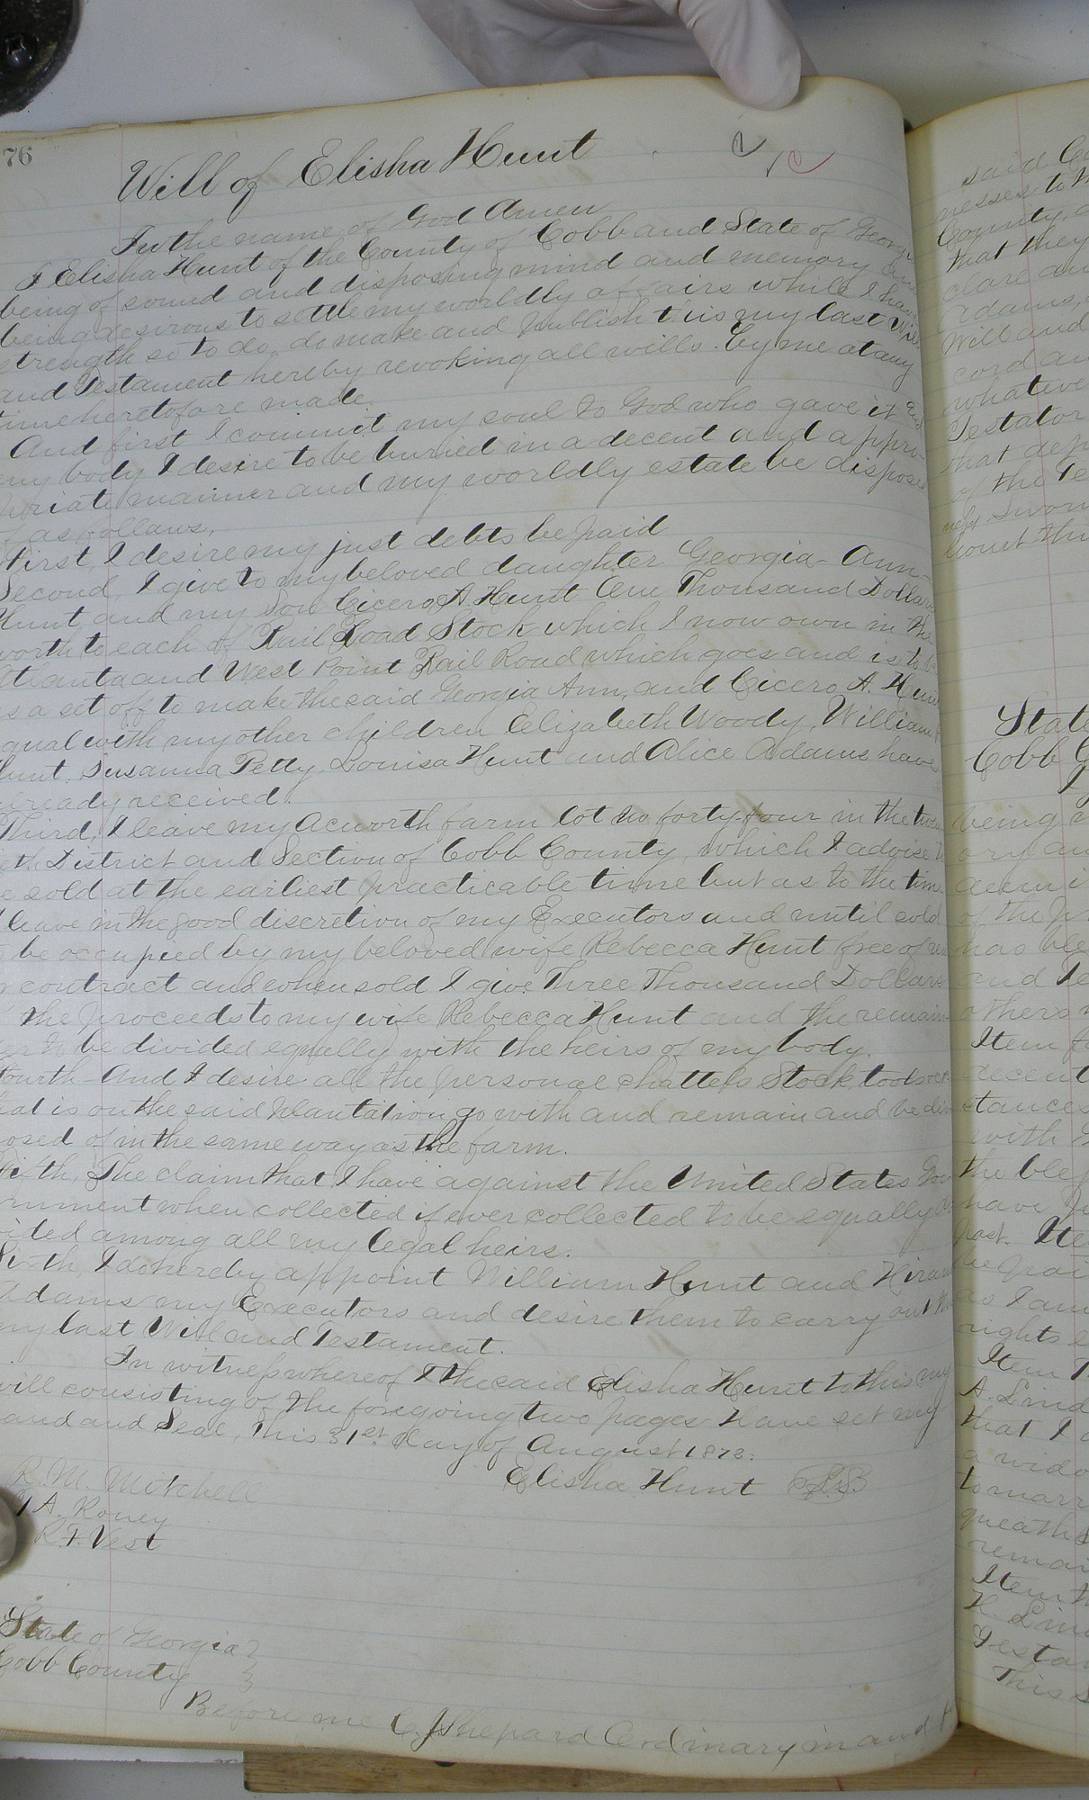 76
Will of Elisha Hunt
In the name of God Amen
I Elisha Hunt of the County of Cobb and State of Georgia
being of sound and disposing mind and memory and
being desirous to settle my worldly affairs while I have
strength so to do, do make and publish this my last Will
and Testament hereby revoking all wills. by me at any
time heretofore made.
And first I commit my soul to God who gave it and
my body I desire to be buried in a decent and appro
priate manner and my worldly estate be disposed
of as follows.
First I desire my just debts be paid
Second, I give to my beloved daughter Georgia Ann
Hunt and my Son Cicero A. Hunt One Thousand Dollars
worth to each of Rail Road Stock which I now own in the
Atlanta and West Point Rail Road which goes and is to be
as a set off to make the said Georgia Ann, and Cicero A. Hunt
equal with my other children Elizabeth Woody, William
Hunt. Susanna Petty Louisa Hunt and Alice Adams have
already received.
Third, I leave my Acworth farm lot no forty-four in the
District and Section of Cobb County, which I advise to
be sold at the earliest practicable time but as to the time
I leave in the good discretion of my Executors and until sold
to be occupied by my beloved wife Rebecca Hunt free of
contract and when sold I give Three Thousand Dollars
of the proceeds to my wife Rebecca Hunt and the remain
der to be divided equally with the heirs of my body.
Fourth And I desire all the personal chattels Stock tools
that is on the said Plantation go with and remain and be dis
posed of in the same way as the farm.
Fifth, The claim that I have against the United States Gov
ernment when collected if ever collected to be equally di
vided among all my legal heirs.
Sixth, I do hereby appoint William Hunt and Hiram
Adams my Executors and desire them to carry out this
my last Will and Testament.
In witness whereof I the said Elisha Hunt to this my
will consisting of the foregoing two pages have set my
hand and Seal, this 31st. day of August 1872.
Elisha Hunt
R. M. Mitchell
A. Roney
R. F. Vest
State of Georgia
Cobb County
Before me C. J. Shepard Ordinary in and
said
nesses to
County,
that they
clare an
Adams,
Will and
cord an
whateve
Testator
that dep
of the Te
Sworn
State
Cobb C
being
ory an
of the
has ble
and
others
Item
decent
stance
with
the ble
have
past. Ite
as I am
rights
Item
A. Lind
that I
a wido
to marr
queath
remai
Item
Testa
This